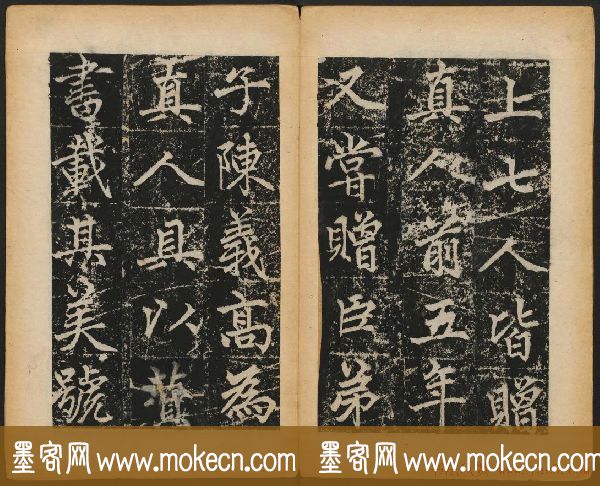 上七人皆贈
真人前五年
又嘗贈臣弟
子陳義高為
真人具以
書載其美號
墨客网 www.mokecn.com 墨客网 www.mokecn.com